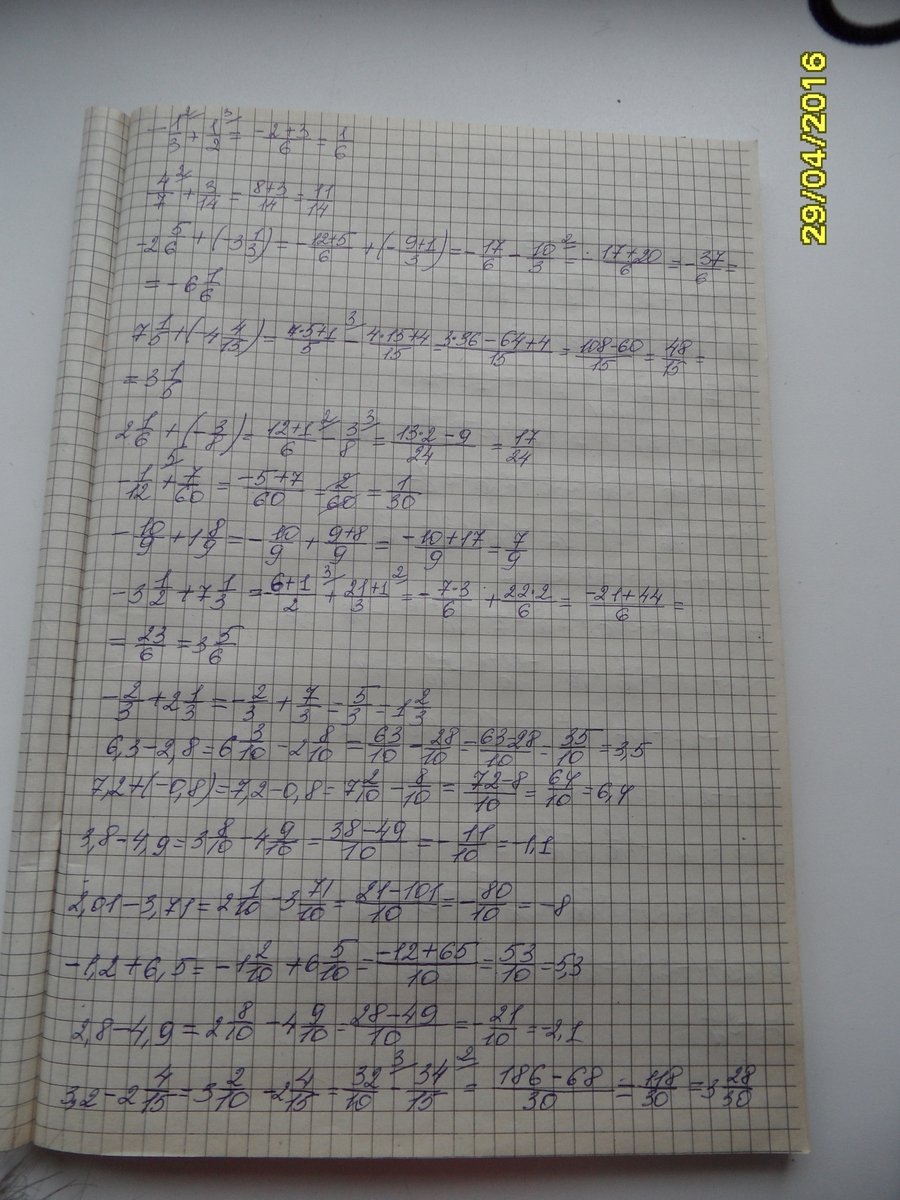 29/04/2016
-1/3 2/ + 1/2 3/ = -2+3/6 = 1/6
4/7 2/ + 3/14 = 8+3/14 = 11/14
-2 5/6 + (-3 1/3) = -12+5/6 + (-9+1/3) = -17/6 - 10/3 2/ = -17+20/6 = -37/6 =
= -6 1/6
7 1/5 + (-4 4/15) = 7·5+1/5 3/ - 4·15+4/15 = 3·36-64+4/15 = 108-60/15 = 48/15 =
= 3 1/5
2 1/6 + (-3/8) = 12+1/6 2/ - 3/8 3/ = 13·2-9/24 = 17/24
-1/12 5/ + 7/60 = -5+7/60 = 2/60 = 1/30
-10/9 + 1 8/9 = -10/9 + 9+8/9 = -10+17/9 = 7/9
-3 1/2 + 7 1/3 = -6+1/2 3/ + 21+1/3 2/ = -7·3/6 + 22·2/6 = -21+44/6 =
= 23/6 = 3 5/6
-2/3 + 2 1/3 = -2/3 + 7/3 = 5/3 = 1 2/3
6,3-2,8 = 6 3/10 - 2 8/10 = 63/10 - 28/10 = 63-28/10 = 35/10 = 3,5
7,2+(-0,8) = 7,2-0,8 = 7 2/10 - 8/10 = 72-8/10 = 64/10 = 6,4
3,8-4,9 = 3 8/10 - 4 9/10 = 38-49/10 = -11/10 = -1,1
2,01-3,71 = 2 1/10 - 3 71/10 = 21-101/10 = -80/10 = -8
-1,2+6,5 = -1 2/10 + 6 5/10 = -12+65/10 = 53/10 = 5,3
2,8-4,9 = 2 8/10 - 4 9/10 = 28-49/10 = -21/10 = -2,1
3,2-2 4/15 = 3 2/10 - 2 4/15 = 32/10 3/ - 34/15 2/ = 186-68/30 = 118/30 = 3 28/30